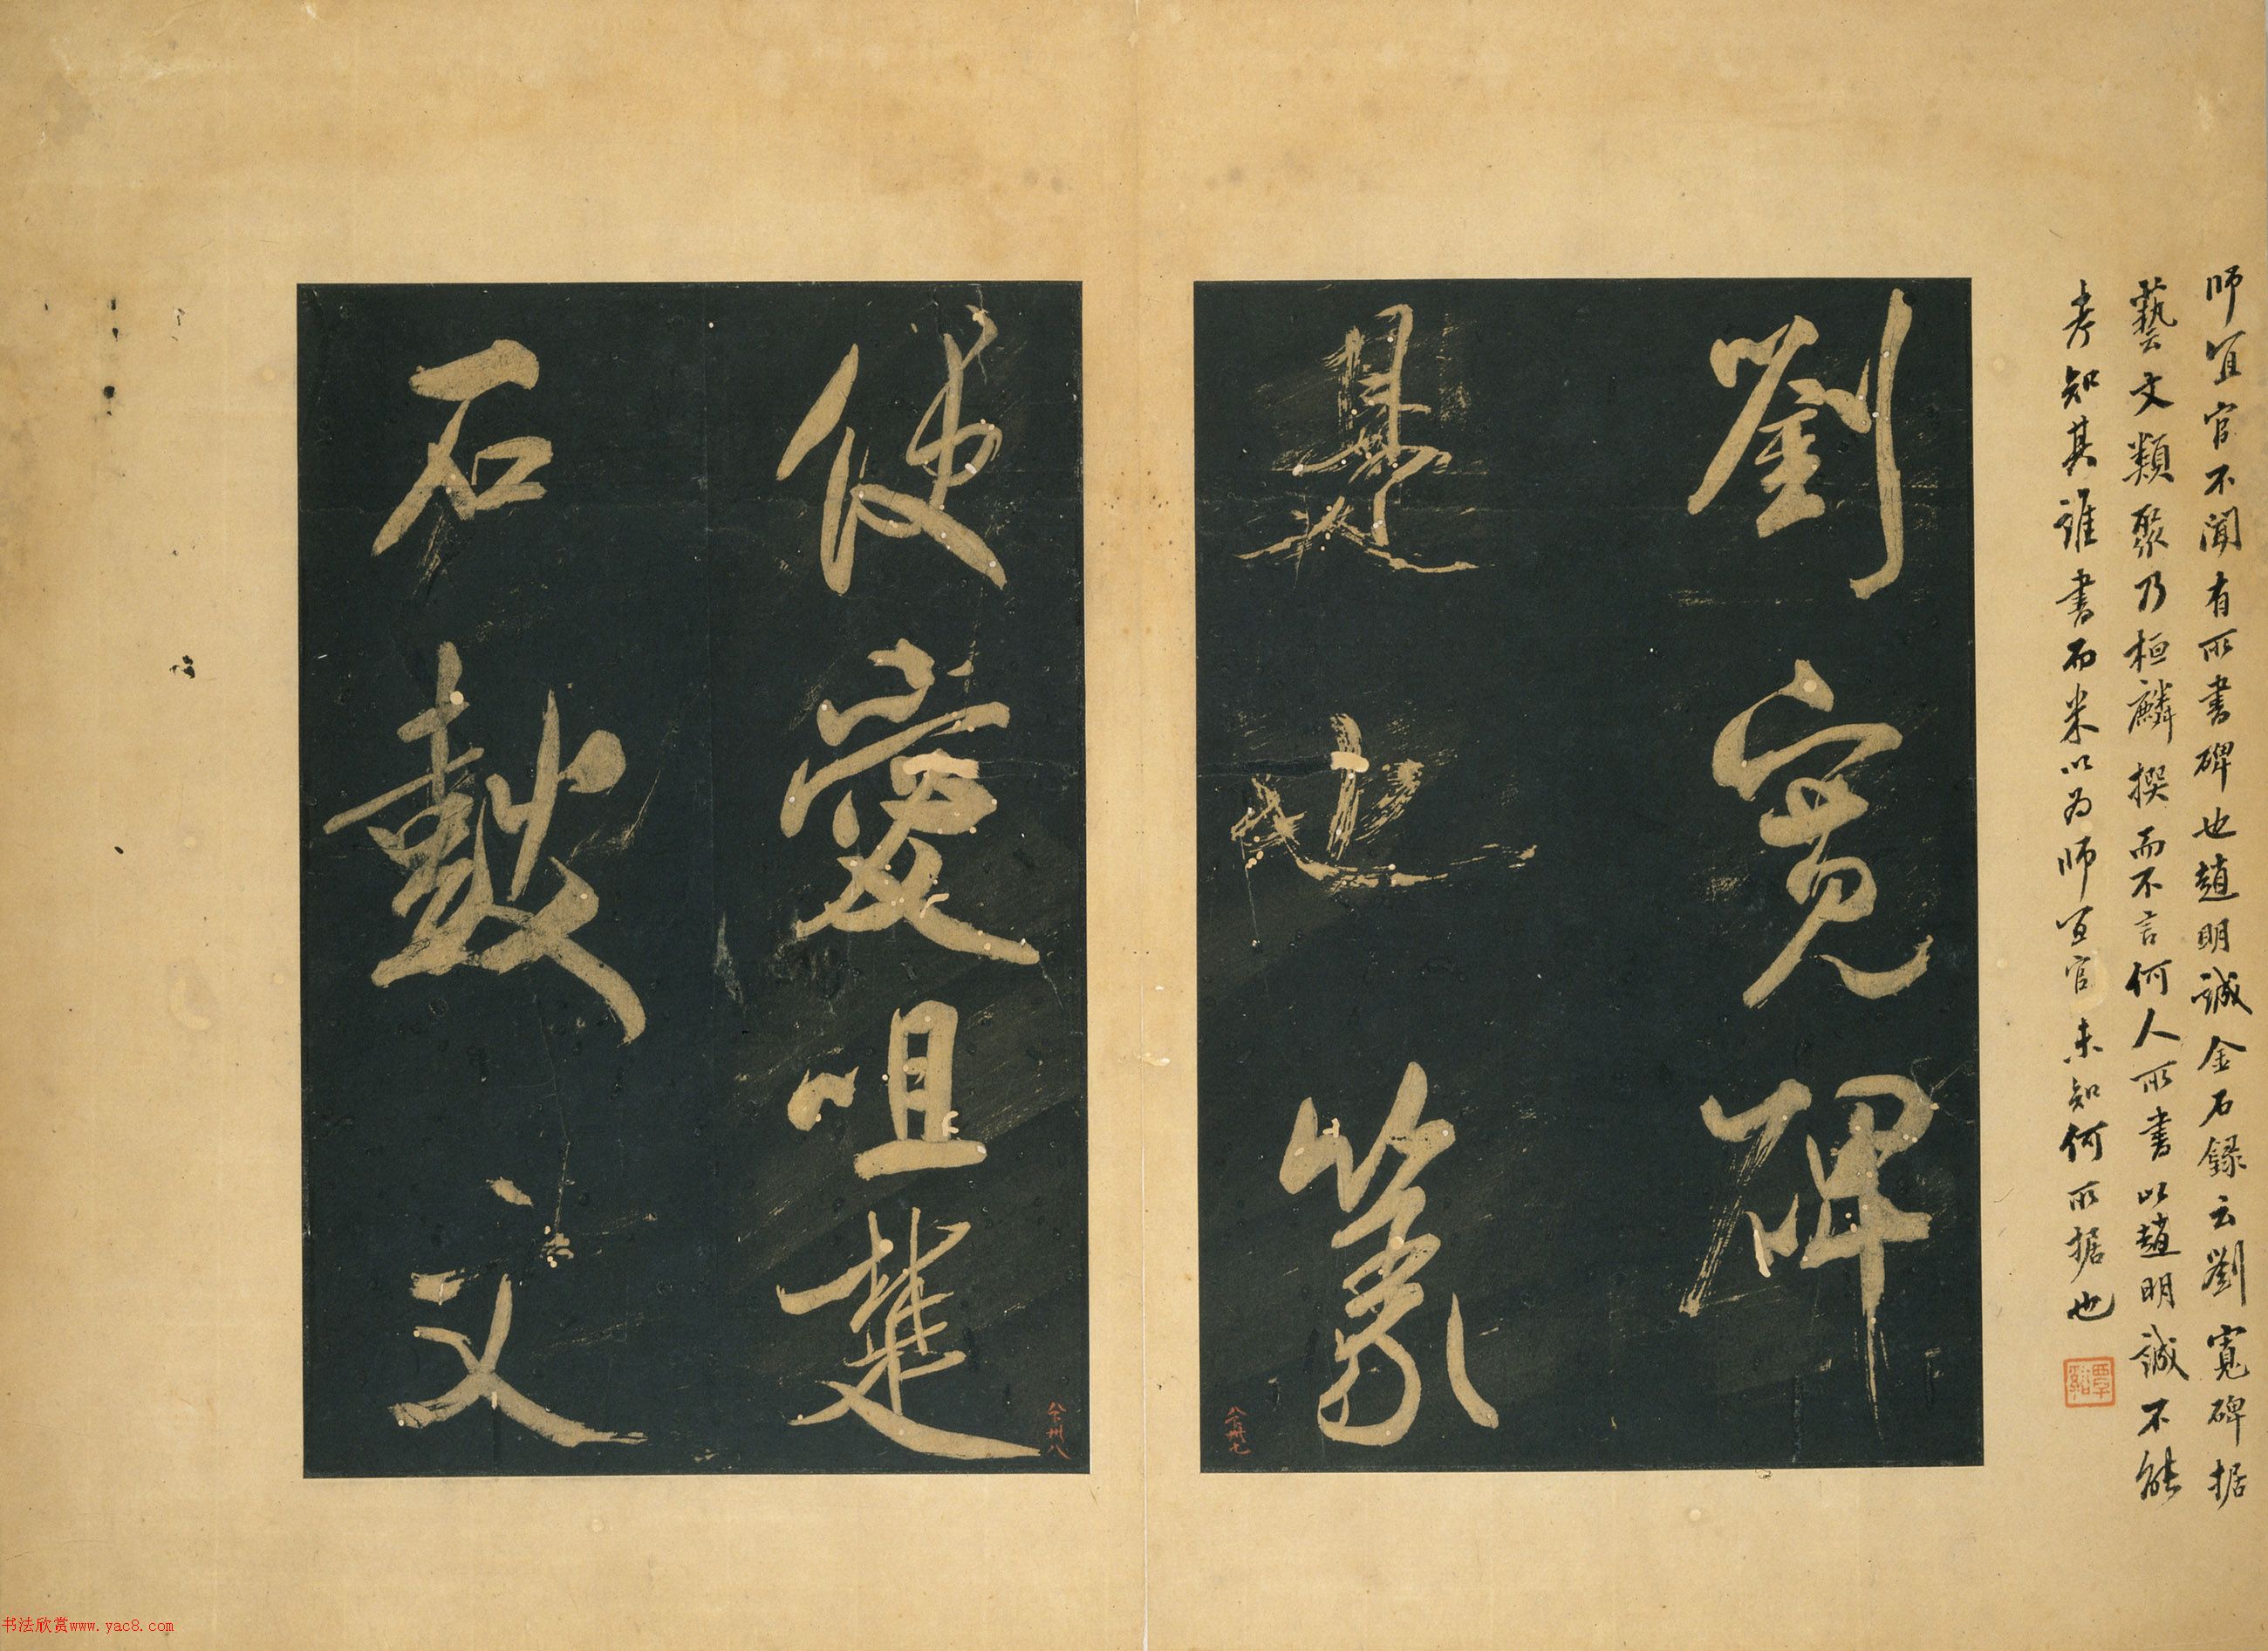 師宜官不聞有所書碑也趙明誠金石錄云劉寬碑据
藝文類聚乃桓麟撰而不言何人所書以趙明誠不能
考知其誰書而米以為師宜官未知何所据也
譚谿
劉寬碑
是也篆
八下卅七
便愛咀楚
石鼓文
八下卅八
书法欣赏www.yac8.com